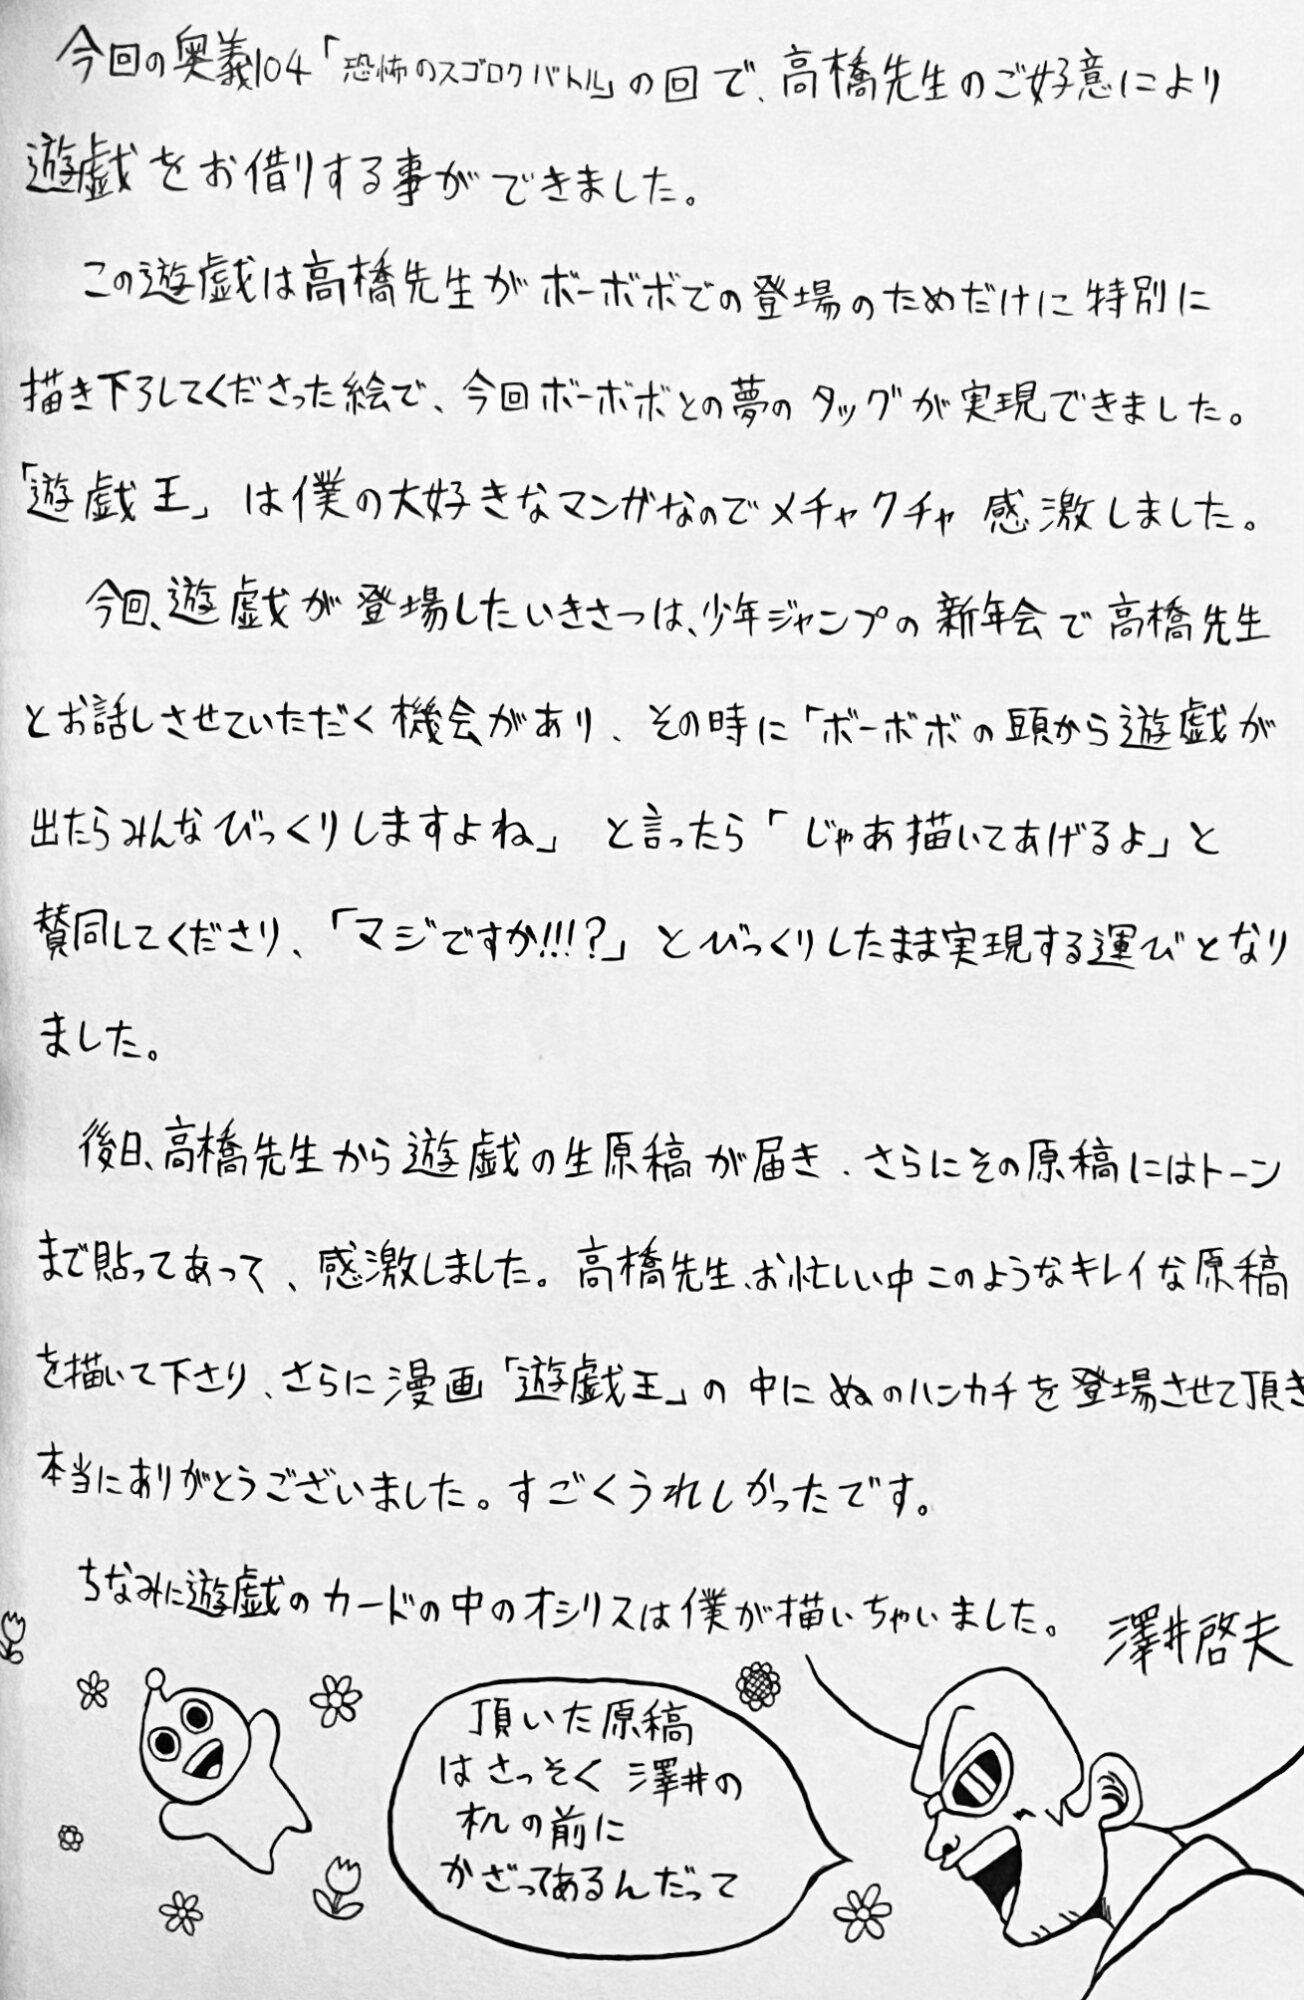 今回の奥義104「恐怖のスゴロクバトル」の回で、高橋先生のご好意により
遊戯をお借りする事ができました。
この遊戯は高橋先生がボーボボでの登場のためだけに特別に
描き下ろしてくださった絵で、今回ボーボボとの夢のタッグが実現できました。
「遊戯王」は僕の大好きなマンガなのでメチャクチャ感激しました。
今回、遊戯が登場したいきさつは、少年ジャンプの新年会で高橋先生
とお話しさせていただく機会があり、その時に「ボーボボの頭から遊戯が
出たらみんなびっくりしますよね」と言ったら「じゃあ描いてあげるよ」と
賛同してくださり、「マジですか!!!?」とびっくりしたまま実現する運びとなり
ました。
後日、高橋先生から遊戯の生原稿が届き、さらにその原稿にはトーン
まで貼ってあって、感激しました。高橋先生、お忙しい中このようなキレイな原稿
を描いて下さり、さらに漫画「遊戯王」の中にぬのハンカチを登場させて頂き
本当にありがとうございました。すごくうれしかったです。
ちなみに遊戯のカードの中のオシリスは僕が描いちゃいました。
澤井啓夫
頂いた原稿
はさっそく澤井の
机の前に
かざってあるんだって